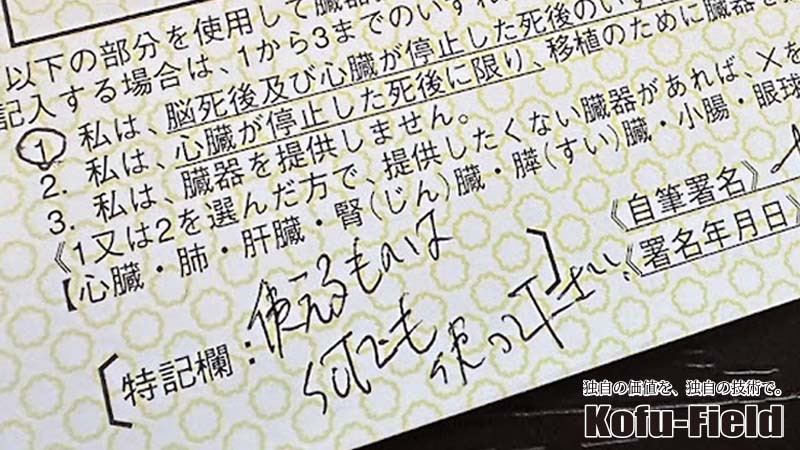 以下の部分を使用して臓器
記入する場合は、1から3までのいずれ
1. 私は、脳死後及び心臓が停止した死後のいず
2. 私は、心臓が停止した死後に限り、移植のために臓器を
3. 私は、臓器を提供しません。
《1又は2を選んだ方で、提供したくない臓器があれば、×を
【心臓・肺・肝臓・腎(じん)臓・膵(すい)臓・小腸・眼球
[特記欄:使えるものは
何でも
使って下さい]
《自筆署名》
《署名年月日》
独自の価値を、独自の技術で。
Kofu-Field